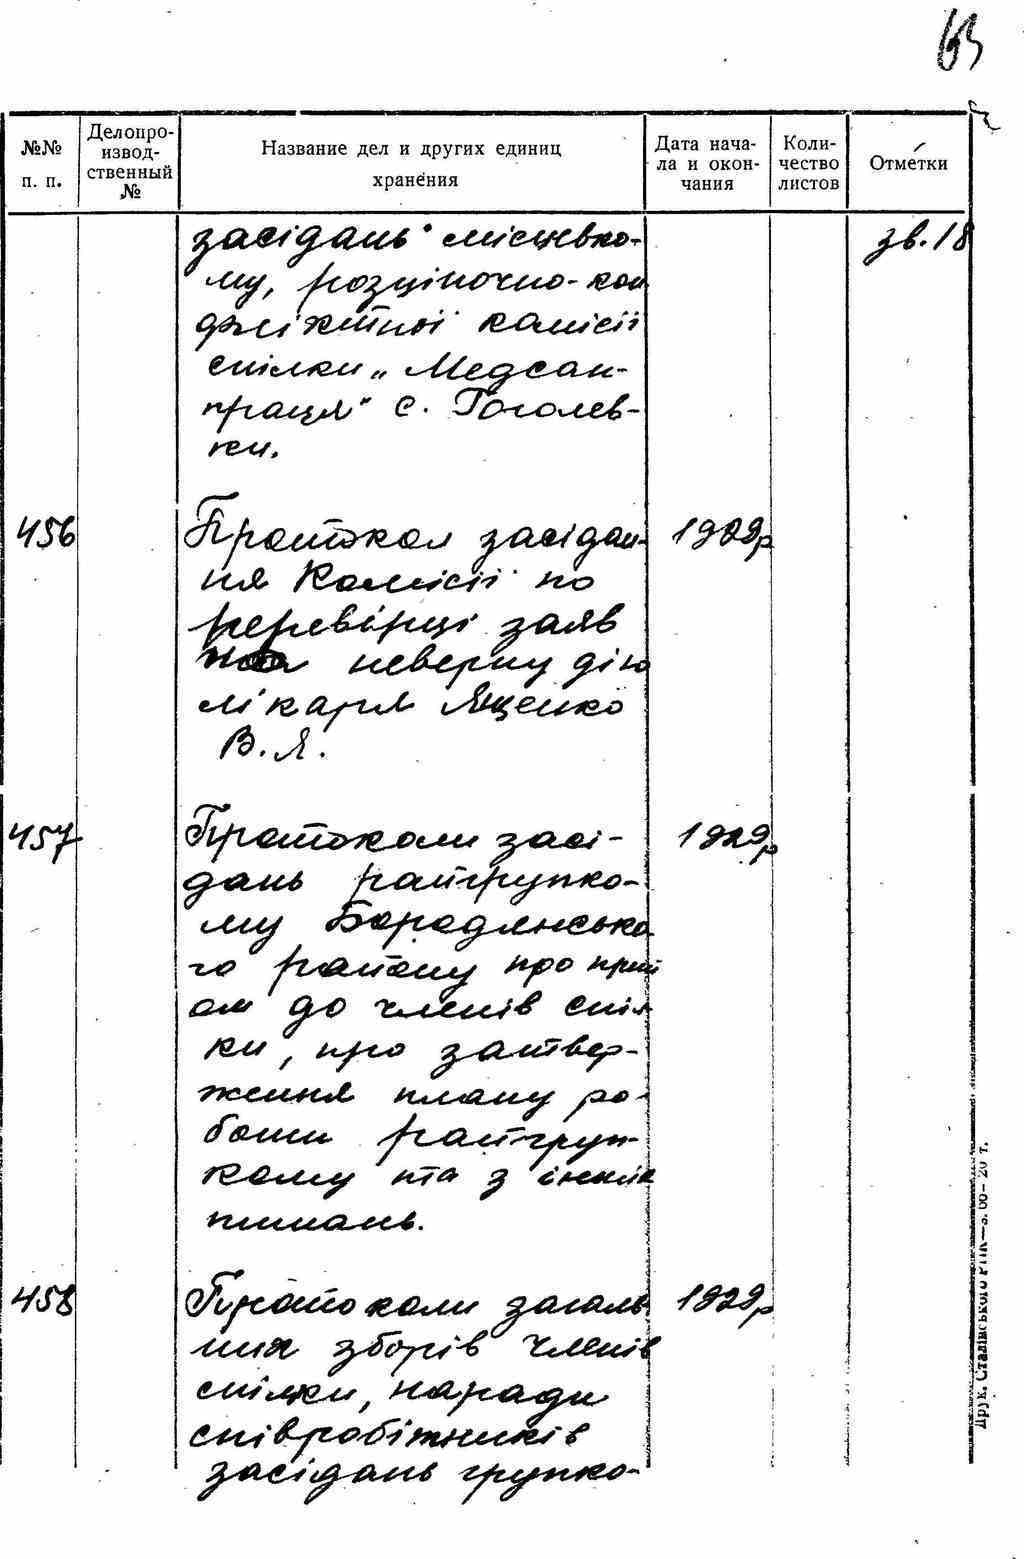 63
№№ п. п.
Делопро-
извод-
ственный
№
Название дел и других единиц
хранения
Дата нача-
ла и окон-
чания
Коли-
чество
листов
Отметки
засідань місцевко-
му, розціночно-кон
фліктної комісії
спілки „Медсан-
праця" с. Гоголев-
ки.
зв. 18
456
Протокол засідан-
ня Комісії по
перевірці заяв
на неверну дію
лікаря Ященко
В. Я.
1929р
457
Протоколи засі-
дань райгрупко-
му Бородянсько
го району про прий
ом до членів спіл
ки, про затвер-
ження плану ро-
боти райгруп-
кому та з інших
питань.
1929р
458
Протоколи загаль
них зборів членів
спілки, наради
співробітників
засідань групко-
1929р
Друк. Сталінського РПК—з. 66— 20 т.